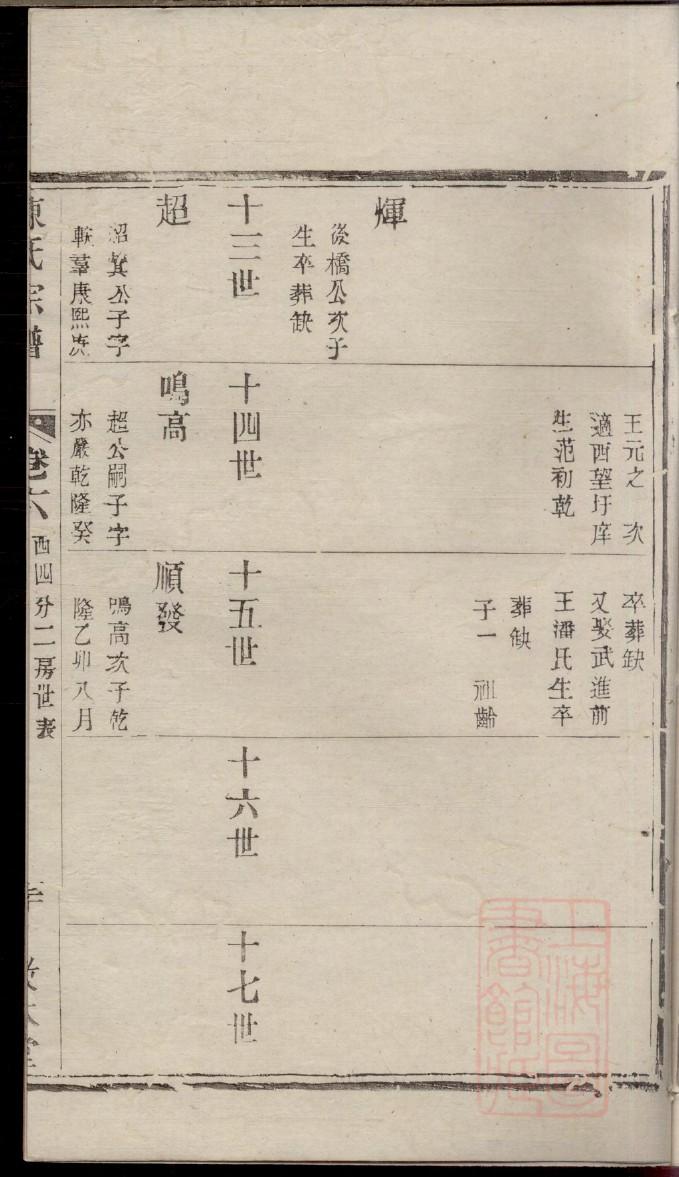 煇
後橋公次子
生卒葬缺
王元之 次
適西望圩庠
生范初乾
卒葬缺
又娶武進前
王潘氏生卒
葬缺
子一 祖齡
十三世
十四世
十五世
十六世
十七世
超
紹箕公子字
軼羣康熙
鳴高
超公嗣子字
亦嚴乾隆癸
順發
鳴高次子乾
隆乙卯八月
陳氏宗譜
卷六
西四分二房世表
上海圖書館藏